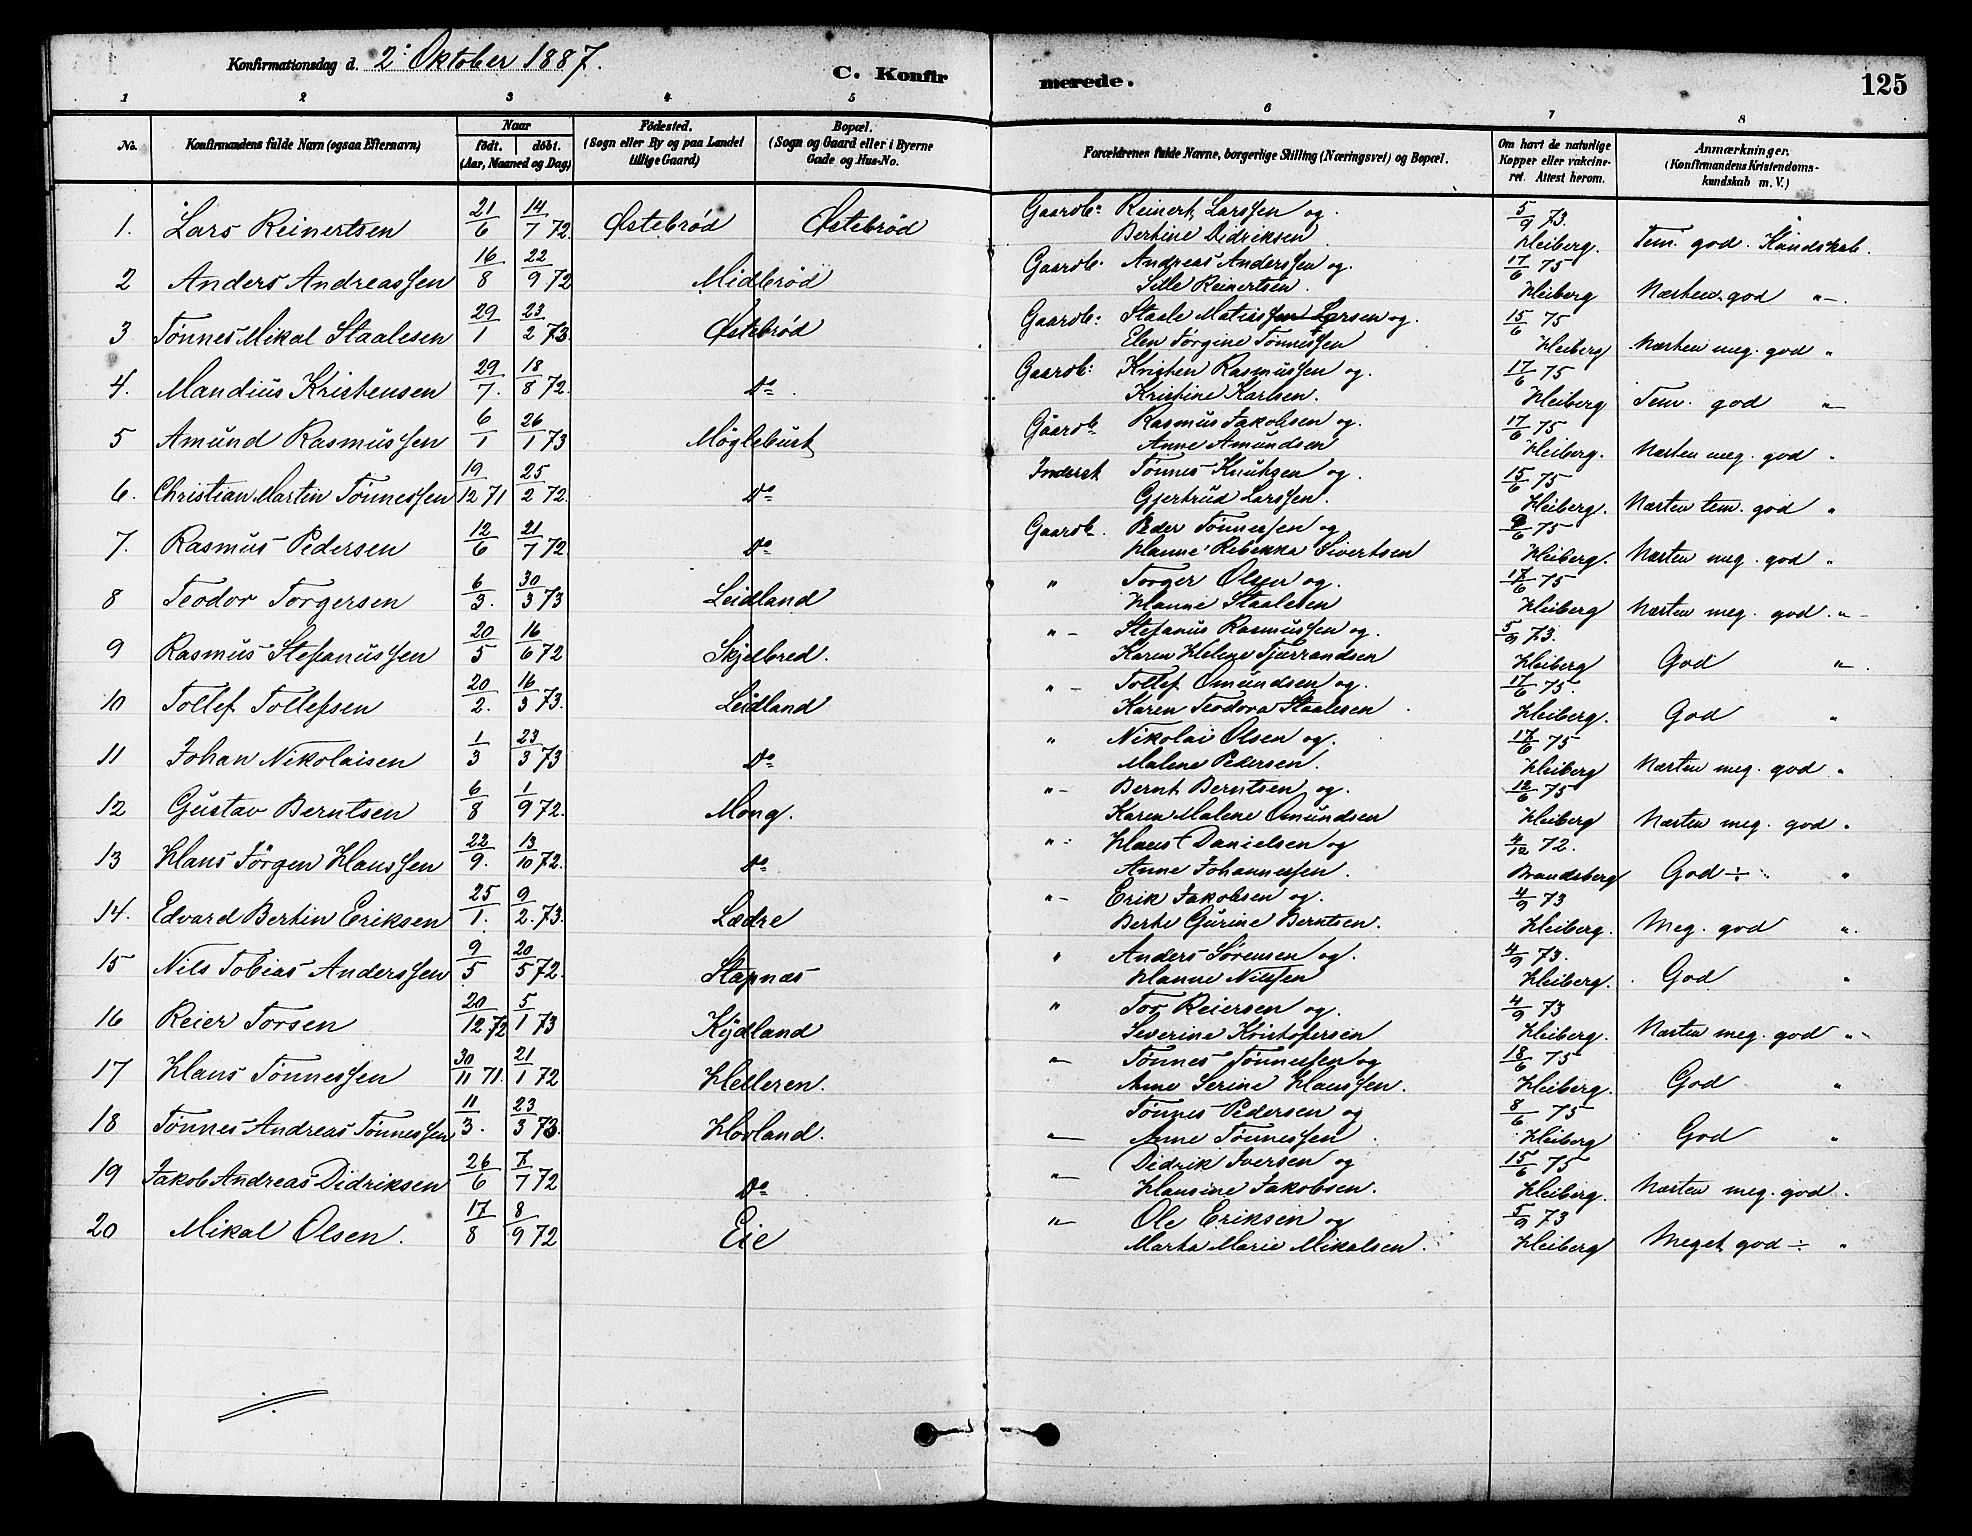 Konfirmationsdag d. 2: Oktober 1887.
C. Konfir
merede.
125
1 2 3 4 5 6 7 8
No. Konfirmandens fulde Navn (ogsaa Efternavn) Naar Födested. Bopæl. Forældrenes fulde Navne, borgerlige Stilling (Næringsvei) og Bopæl. Om havt de naturlige Anmærkninger.
födt. döbt. (Sogn eller By og paa Landet (Sogn og Gaard eller i Byerne Kopper eller vakcine- (Konfirmandens Kristendoms-
(Aar, Maaned og Dag) tillige Gaard) Gade og Hus-No. ret. Attest herom. kundskab m. V.)
1. Lars Reinertsen 21/6 14/7 72. Østebrød Østebrød Gaardb: Reinert Larssen og. 5/9 73. Tem. god. Kundskab.
Bertine Didriksen. Heiberg.
2 Anders Andreassen 16/8 22/9 72 Midbrød Gaardb. Andreas Anderssen og. 17/6 75 Næsten god "-.
Sille Reinertsen. Heiberg
3 Tønnes Mikal Staalesen 29/1 23/2 73. Østebrød Gaardb: Staale Matiassen Larsen og. 15/6 75 Næsten meg. god "
Elen Jørgine Tønnessen Heiberg
4. Mandius Kristensen 29/7. 18/8 72. do. Gaardb: Kristen Rasmussen og. 17/6 75 Tem. god "
Kristine Karlsen. Heiberg
5 Amund Rasmussen 6/1 26/1 73 Møglebust Gaardb. Rasmus Jakobsen og. 17/6 75 Næsten meg. god "
Anne Amundsen Heiberg.
6. Christian Martin Tønnessen 19/12 71 25/2 72. do Inderst Tønnes Knutzen og. 15/6 75 Næsten tem. god "
Gjertrud Larssen. Heiberg.
7. Rasmus Pedersen 12/6 21/7 72 do Gaardb. Peder Tønnessen og 9/6 75 Næsten meg. god "
Hanne Rebekka Sivertsen Heiberg.
8 Teodor Torgersen 6/3. 30/3 73 Leidland " Torger Olsen og. 17/6 75 Næsten meg. god. "-
Hanne Staalesen Heiberg
9 Rasmus Stefanussen 20/5 16/6 72 Skjelbred. "- Stefanus Rasmussen og. 5/9 73. God "
Karen Helene Tjærrandsen Heiberg
10 Tollef Tollefsen 20/2. 16/3 73. Leidland "- Tollef Omundsen og. 17/6 75. God "
Karen Teodora Staalesen. Heiberg.
11 Johan Nikolaisen 1/3 23/3 73 do " Nikolai Olsen og. 17/6 75 Næsten meg. god "
Malene Pedersen. Heiberg
12 Gustav Berntsen 6/8 1/9 72. Mong. "- Bernt Berntsen og. 12/6 75 Næsten meg. god "
Karen Malene Omundsen Heiberg
13 Hans Jörgen Hanssen 22/9. 13/10 72. do "- Hans Danielsen og 4/12 72. God ÷ "
Anne Johannessen. Brandsberg
14. Edvard Bertin Eriksen 25/1. 9/2. 73. Lædre "- Erik Jakobsen og. 4/9 73 Meg. god "
Berte Gurine Berntsen. Heiberg.
15 Nils Tobias Anderssen 9/5 20/5 72. Stapnæs " Anders Sørensen og. 4/9 73. God "
Hanne Nilssen Heiberg.
16 Reier Torsen 20/12 72 5/1 73 Kydland " Tor Reiersen og. 4/9 73 Næsten meg. god "-
Severine Kristofersen Heiberg.
17 Hans Tønnessen 30/11 71. 21/1 72 Helleren. "- Tønnes Tønnessen og 18/6 75 God "
Anne Serine Hanssen. Heiberg.
18 Tønnes Andreas Tønnessen 11/3. 23/3 73. Hovland. Tønnes Pedersen og 8/6 75 God "
"- Anne Tønnessen. Heiberg
19 Jakob Andreas Didriksen 26/6 7/7 72 do Didrik Iversen og 15/6 75 Næsten meg. god. "
"- Hansine Jakobsen. Heiberg.
20 Mikal Olsen. 17/8 8/9 72 Eie "- Ole Eriksen og 5/9 73 Meget god ÷ "
Marta Marie Mikalsen. Heiberg